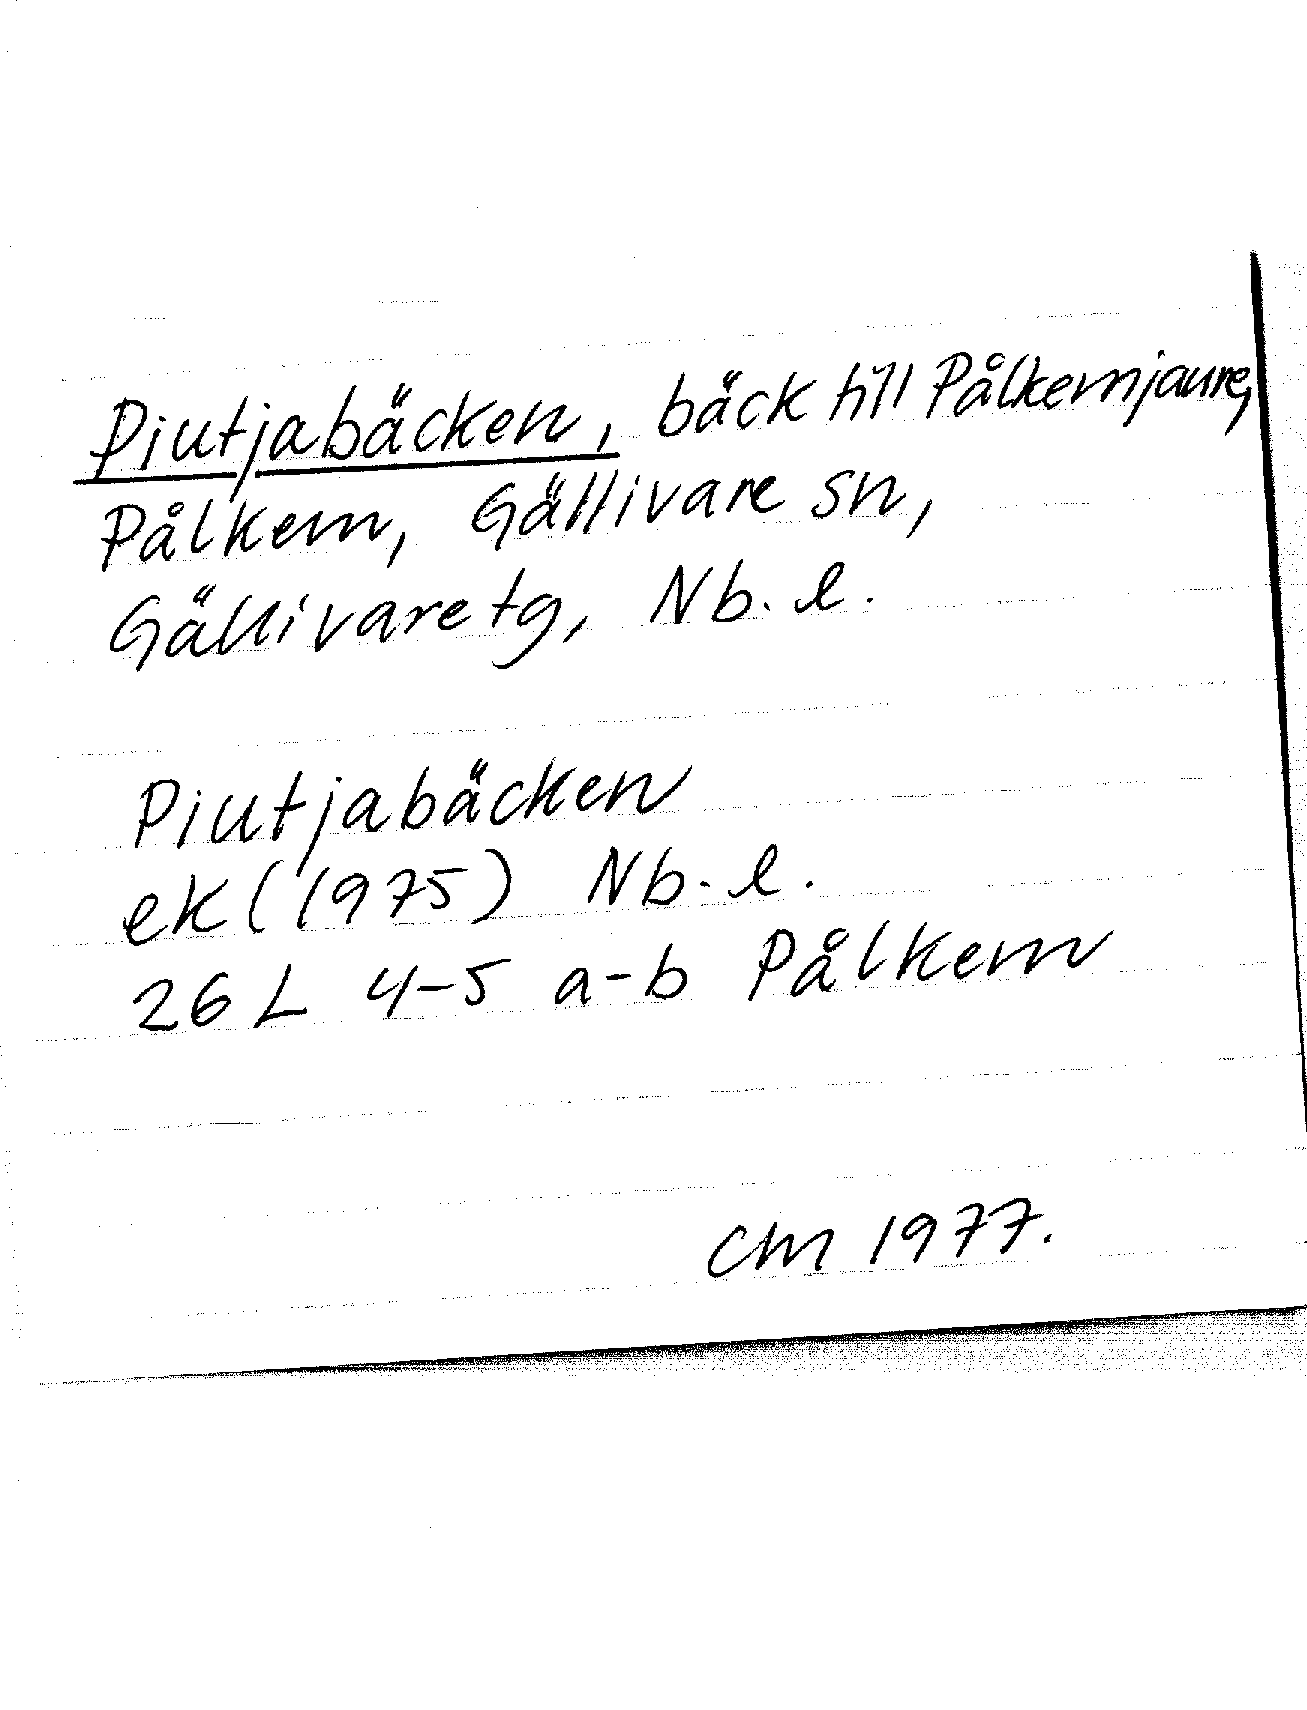 Piutjabäcken, bäck till Pålkemjaure,
Pålkem, Gällivare sn,
Gällivare tg, Nb. l.
Piutjabäcken
ek (1975) Nb. l.
26 L 4-5 a-b Pålkem
CM 1977.